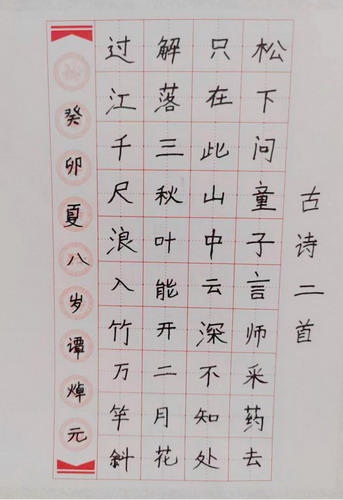 古诗二首
松下问童子言师采药去
只在此山中云深不知处
解落三秋叶能开二月花
过江千尺浪入竹万竿斜
癸卯夏八岁谭焯元